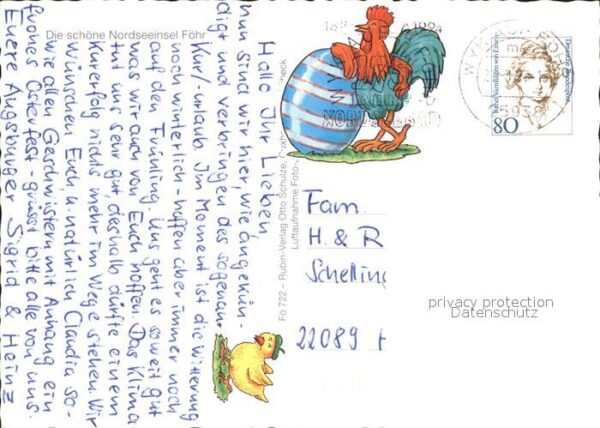 Die schöne Nordseeinsel Föhr
Hallo Ihr Lieben,
nun sind wir hier, wie angekün-
digt und verbringen des sogenan.
Kur/-urlaub. Im Moment ist die Witterung
noch winterlich - hoffen aber immer noch
auf den Frühling. Uns geht es soweit gut
was wir auch von Euch hoffen. Das Klima
tut uns sehr gut, deshalb dürfte einem
Kurerfolg nichts mehr im Wege stehen. Wir
wünschen Euch u. natürlich Claudia so-
wie allen Geschwistern mit Anhang ein
frohes Osterfest - grüsst bitte alle von uns.
Euere Augsburger Sigrid & Heinz
Fö 722 - Rubin-Verlag Otto Schulze,
Luftaufnahme Foto-
80
Deutsche Bundespost
Fam.
H. & R
Schelling
22089 H
privacy protection
Datenschutz